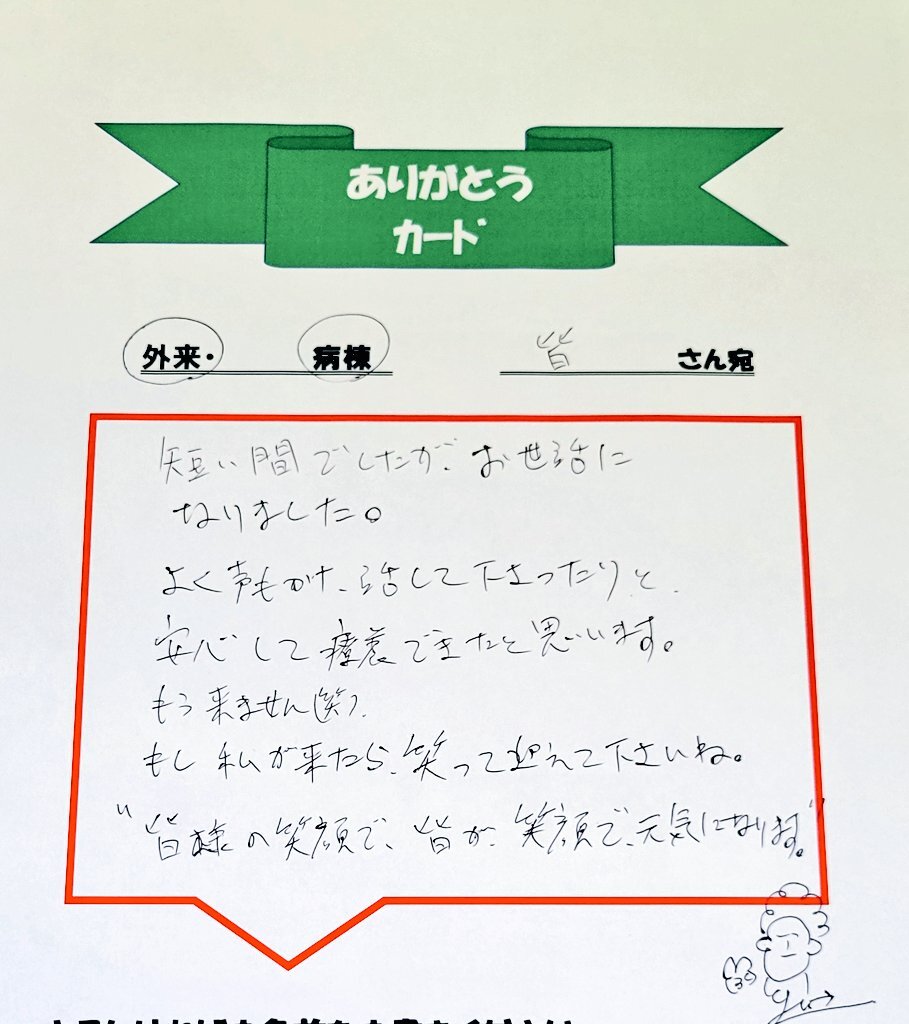 ありがとう
カード
外来・ 病棟 皆 さん宛
短い間でしたが、お世話に
なりました。
よく声もかけ、話して下さったりと、
安心して療養できたと思います。
もう来ません(笑)
もし私が来たら、笑って迎えて下さいね。
"皆様の笑顔で、皆が、笑顔で、元気になります。"